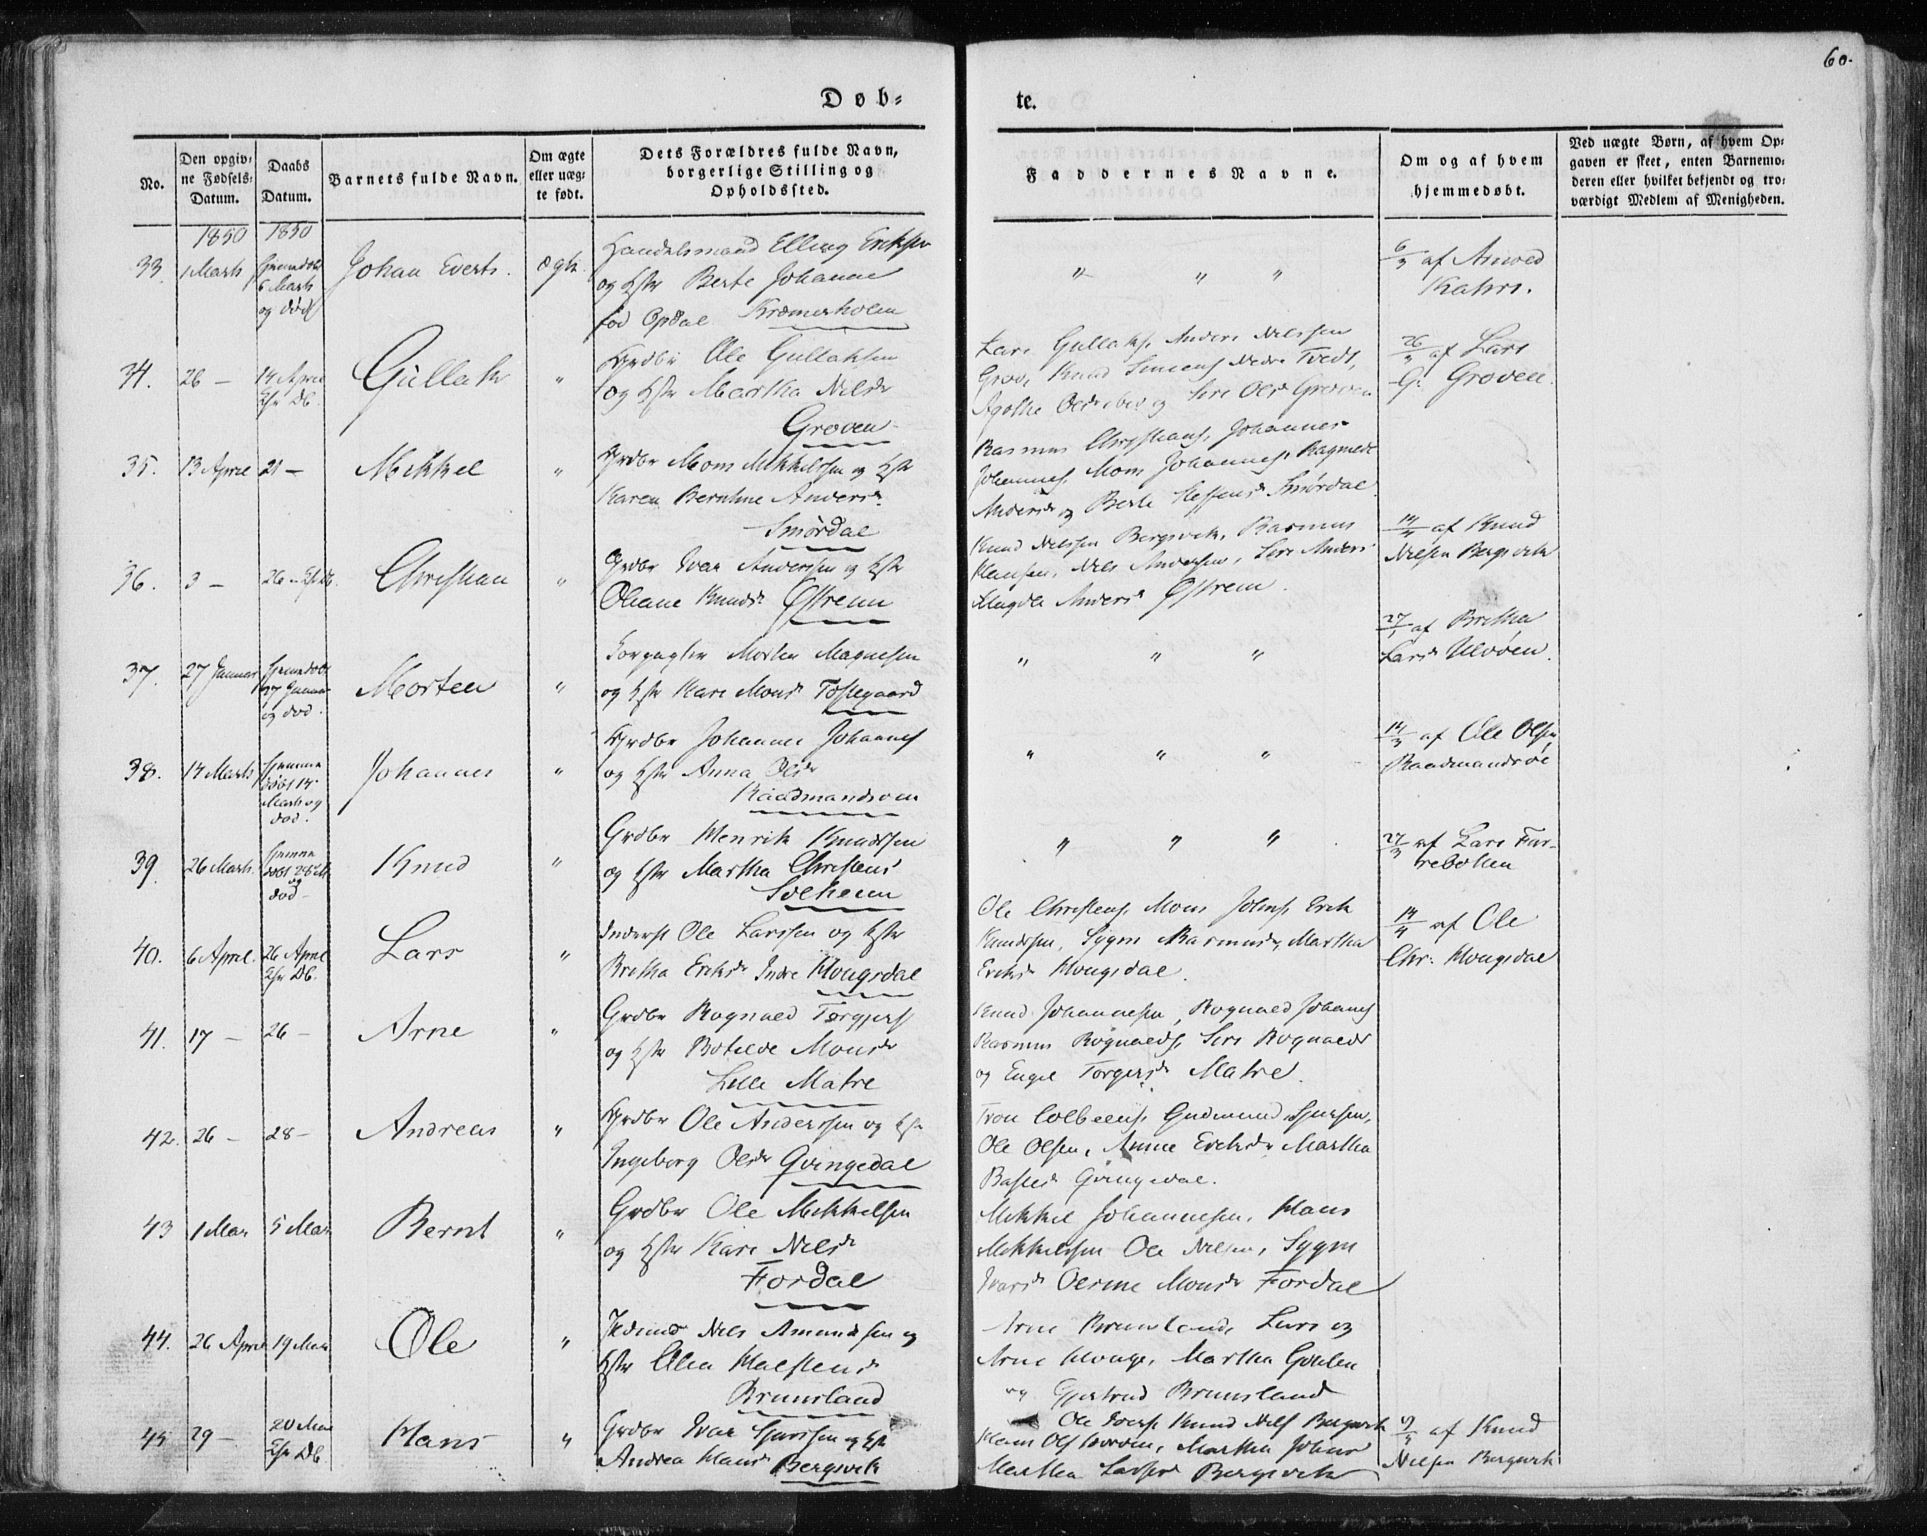 60.
Døb=
te.
No.
Den opgiv=
ne Fødsels=
Datum.
Daabs
Datum.
Barnets fulde Navn.
Om ægte
eller uæg=
te født.
Dets Forældres fulde Navn,
borgerlige Stilling og
Opholdssted.
Faddernes Navne.
Om og af hvem
hjemmedøbt.
Ved uægte Børn, af hvem Op=
gaven er skeet, enten Barnemo=
deren eller hvilket bekjendt og tro=
værdigt Medlem af Menigheden.
1850
1850
33.
1 Marts
Hjemmedøbt
6 Marts
og død
Johan Everts.
ægte.
Handelsmand Elling Eriksen
og Hstr Berte Johanne
fød Opdal Kræmerholen
" " "
6/3 af Arived
Kahrs.
34.
26 –
14 April
Hjr Db.
Gullak
"
Grdbr Ole Gullaksen
og Hstr Martha Nilsdr
Groven
Lars Gullaks. Anders Nilssen
Grov, Knud Simens Nedre Tvedt,
Agathe Olsdr ibid og Siri Olsdr Groven
26/3 af Lars
G. Groven.
35.
13 April
21 –
Mikkel
"
Grdbr Mons Mikkelsen og Hstr
Karen Bernthine Andersdr
Smørdal
Rasmus Christians. Johannes
Johannes. Mons Johannes. Ragnilde
Andersdr og Berte Steffensdr Smørdal.
36.
3 –
26 – Hjr Db.
Christian
"
Grdbr Ivar Anderssen og Hstr
Oliane Knudsdr Østrem
Knud Nilssen Bergsvik, Rasmus
Hansen, Nils Andersen, Siri Anders
Magda Andersdr Østrem.
14/4 af Knud
Nilsen Bergsvik
37.
27 Januar
Hjemmedøbt
27 Januar
og død.
Morten
"
Forpagter Morten Magnesen
og Hstr Kari Monsdr Toftegaard
" " "
27/1 af Britha
Larsdr Ulvøen.
38.
14 Marts
Hjemme
døbt 14
Marts og
død.
Johannes
"
Grdbr Johannes Johannes
og Hstr Anna Olsdr
Raadmandsøen
" " "
14/3 af Ole Olsen
Raadmandsøe
39.
26 Marts.
Hjemme
døbt
og
død –
Knud
"
Grdbr Henrik Knudssen
og Hstr Martha Christens
Solheim
" " "
27/3 af Lars Fur-
rebotten
40.
6 April.
26 April
Hjr Db.
Lars
"
Inderst Ole Larssen og Hstr
Britha Eriksdr Indre Hougsdal
Ole Christens. Mons Johns. Erik
Knudssen, Sygni Rasmusdr, Martha
Eriksdr Hougsdal.
14/4 af Ole
Chr: Hougsdal
41.
17 –
26 –
Arne
"
Grdbr Rognald Torgjers
og Hstr Botilde Monsdr
Lille Matre
Knud Johannesen, Rognald Johannes
Rasmus Rognalds. Siri Rognalds
og Engel Torgersdr Matre.
42.
26 –
28 –
Andreas
"
Grdbr Ole Anderssen og Hstr
Ingeborg Olsdr Qvingedal
Tron Colbeens. Gudmund Sjursen.
Ole Olsen, Anne Eriksdr Martha
Qvingedal.
43
1 Mai
5 Mai
Bernt
"
Grdbr Ole Mikkelsen
og Hstr Kari Nilsdr
Fordal
Mikkel Johannesen, Hans
Mikkelssen Ole Nilsen, Sygni
Ivarsdr Oline Monsdr Fordal
44.
26 April
19 Mai
Ole
"
Nils Amundsen og
Hstr Alia Halstensdr
Brunsland
Arne Brunsland, Lars og
Arne Houge, Martha Golden
og Gjertrud Brunsland
45
29 –
20 Mai
Hjr Db
Hans
"
Grdbr Ivar Sjurssen og Hstr
Andrea Hansdr Bergsvik
Ole Ivers. Knud Nils Bergsvik
Hans Ols Martha Johns
Martha Larsdr Bergsvik
af Knud
Nilsen Bergsvik